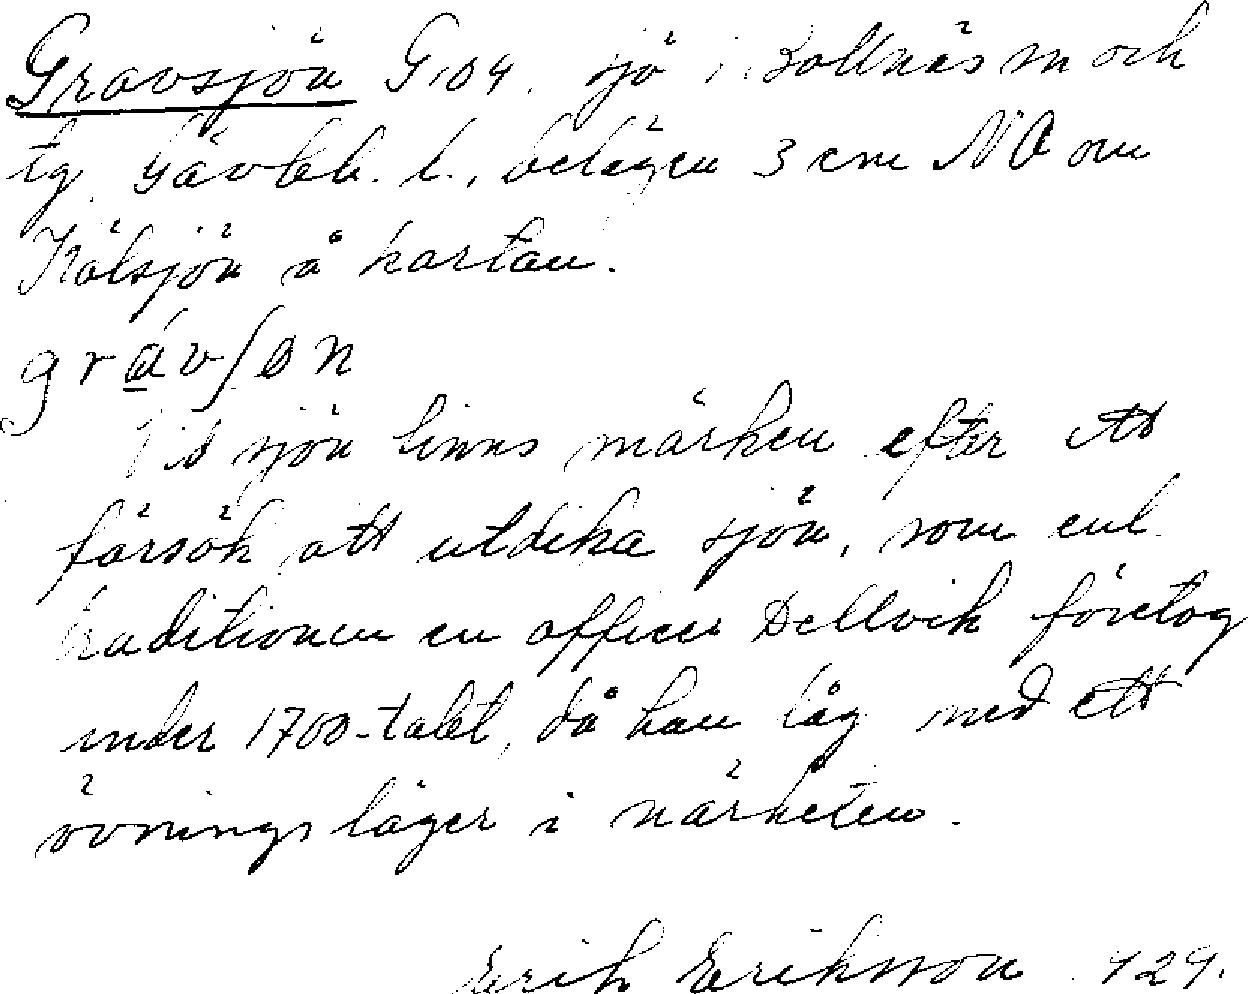 Gravsjön G 104. sjö i Bollnäs sn och
tg. Gävleb. l., belägen 3 cm NO om
Kölsjön å kartan.
grávʃøn
Vid sjön finns märken efter ett
försök att utdika sjön, som enl.
traditionen en officer Dellvik företog
under 1700-talet, då han låg med ett
övningsläger i närheten.
Erik Eriksson 1929.